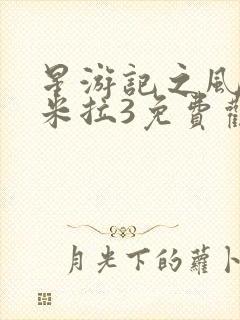 星游記之風
米拉3免費觀
月光下的蘿卜